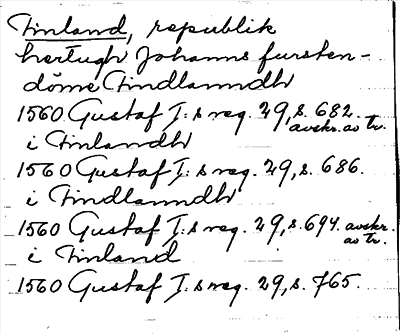 Finland, republik
hertugh Johanns fursten-
döme Findlanndh
1560 Gustaf I:s reg. 29, s. 682.
avskr. av tr.
i Finlandh
1560 Gustaf I:s reg. 29, s. 686.
i Findlanndh
1560 Gustaf I:s reg. 29, s. 694. avskr.
av tr.
i Finland
1560 Gustaf I:s reg. 29, s. 765.